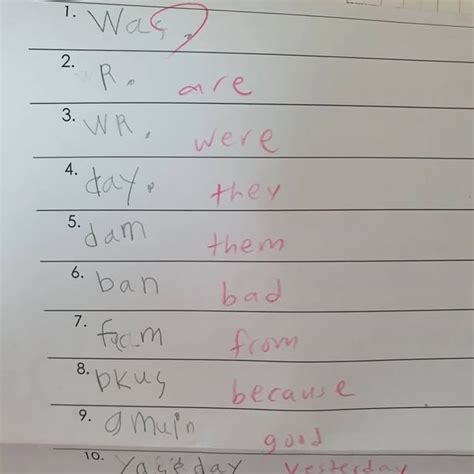 1. Was.
2. R. are
3. WR. were
4. day. they
5. dam them
6. ban bad
7. fram from
8. bkus because
9. gmuin good
10. Yaseday yesterday